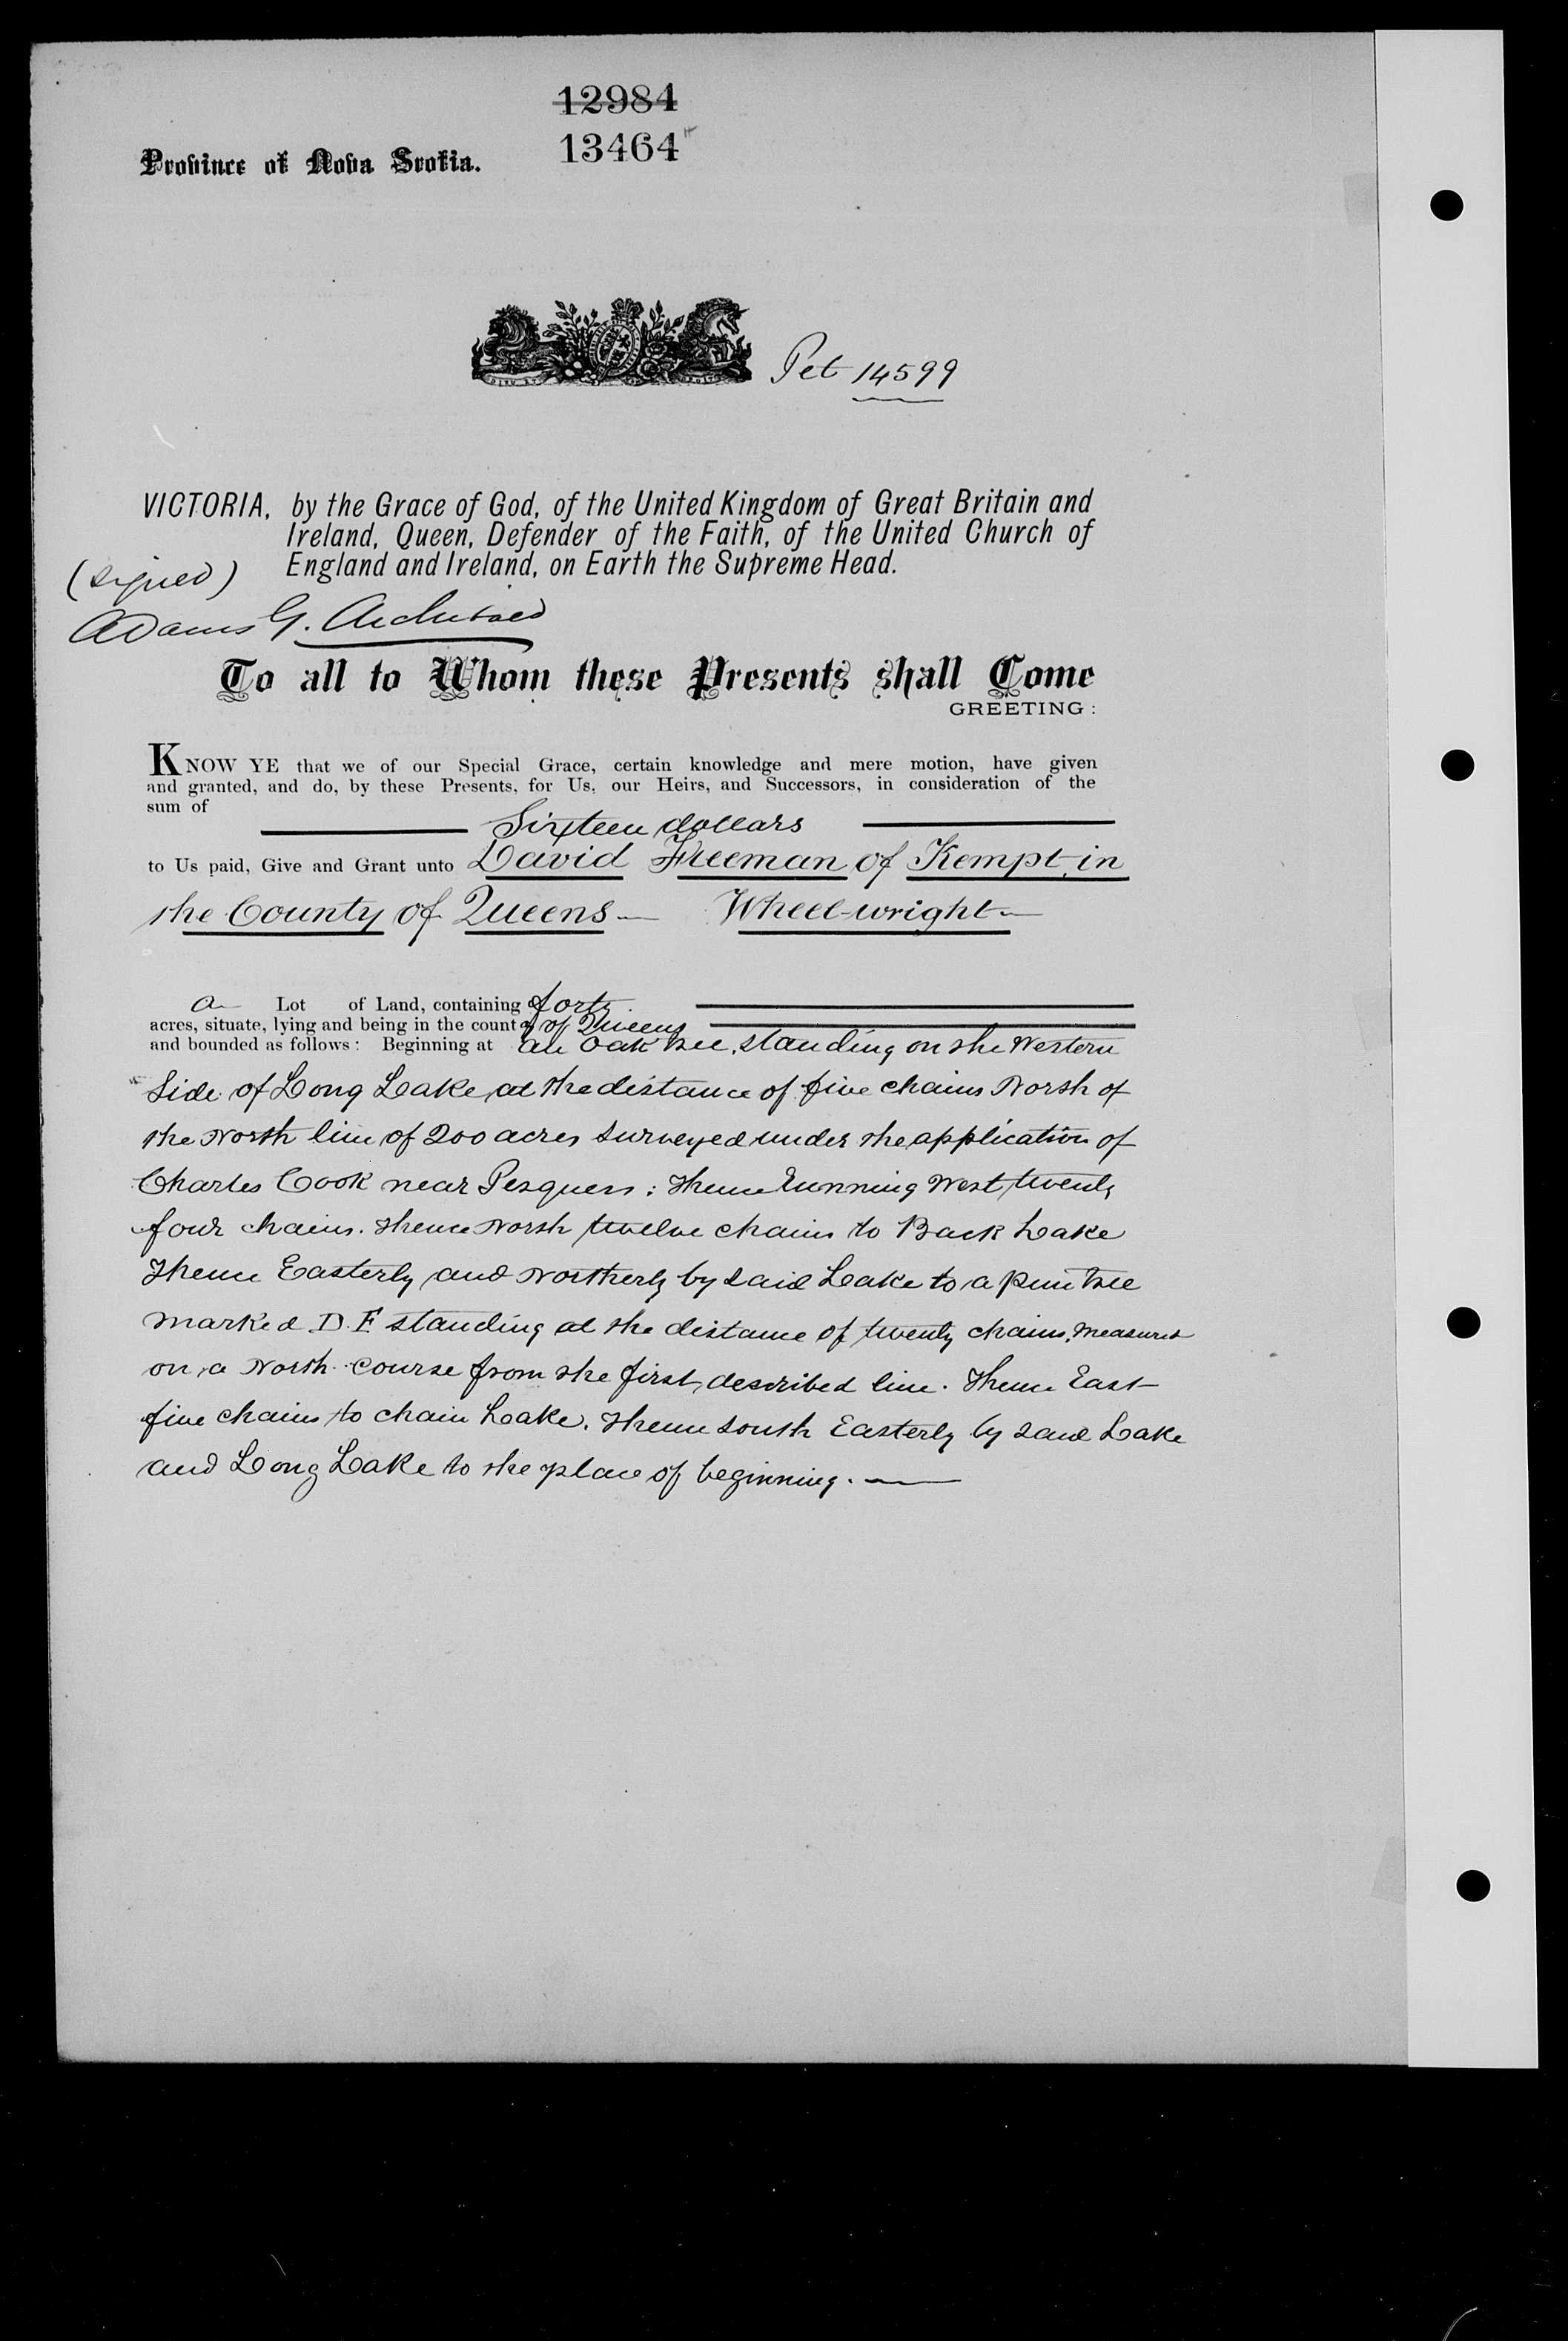 12984
13464
Province of Nova Scotia.
Pet 14599
VICTORIA, by the Grace of God, of the United Kingdom of Great Britain and
Ireland, Queen, Defender of the Faith, of the United Church of
England and Ireland, on Earth the Supreme Head.
(signed)
Adams G. Archibald
To all to Whom these Presents shall Come
GREETING:
KNOW YE that we of our Special Grace, certain knowledge and mere motion, have given
and granted, and do, by these Presents, for Us, our Heirs, and Successors, in consideration of the
sum of
Sixteen dollars
to Us paid, Give and Grant unto David Freeman of Kempt, in
the County of Queens — Wheel-wright —
a Lot of Land, containing forty
acres, situate, lying and being in the county of Queens
and bounded as follows: Beginning at an Oak tree, standing on the Western
Side of Long Lake, at the distance of five chains North of
the North line of 200 acres surveyed under the application of
Charles Cook near Pesquess: Thence running West twenty
four chains. Thence North twelve chains to Back Lake
Thence Easterly and Northerly by said Lake to a pine tree
marked D. F standing at the distance of twenty chains, measured
on a North course from the first described line. Thence East
five chains to chain Lake. Thence South Easterly by said Lake
and Long Lake to the place of beginning. —